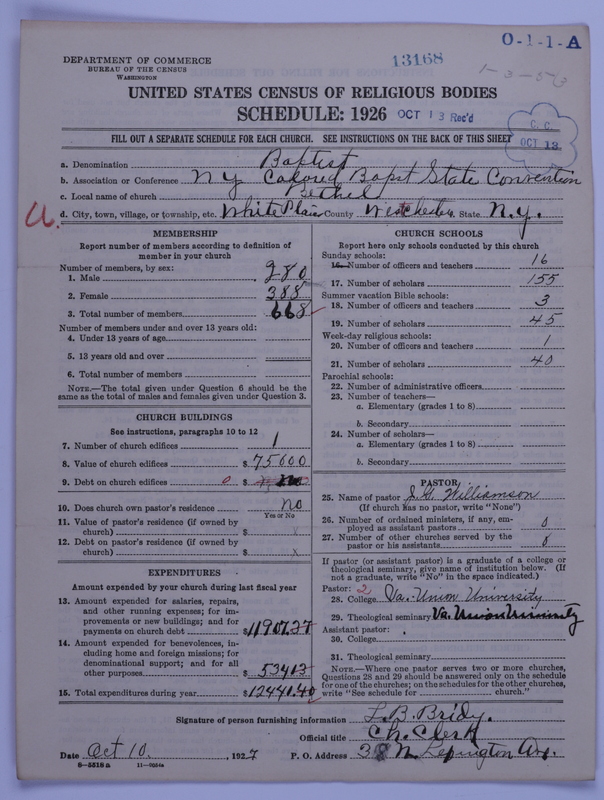 DEPARTMENT OF COMMERCE
BUREAU OF THE CENSUS
WASHINGTON
13168
O-1-1-A
1-3-5-3
UNITED STATES CENSUS OF RELIGIOUS BODIES
SCHEDULE: 1926
OCT 13 Rec'd
C. C.
OCT 13
FILL OUT A SEPARATE SCHEDULE FOR EACH CHURCH. SEE INSTRUCTIONS ON THE BACK OF THIS SHEET
a. Denomination Baptist
b. Association or Conference N Y Colored Bapst State Convention
c. Local name of church Bethel
d. City, town, village, or township, etc. White Plains County Westchester State N.Y.
MEMBERSHIP
Report number of members according to definition of
member in your church
Number of members, by sex:
1. Male 280
2. Female 388
3. Total number of members 668
Number of members under and over 13 years old:
4. Under 13 years of age
5. 13 years old and over
6. Total number of members
NOTE.—The total given under Question 6 should be the
same as the total of males and females given under Question 3.
CHURCH BUILDINGS
See instructions, paragraphs 10 to 12
7. Number of church edifices 1
8. Value of church edifices $ 75000
9. Debt on church edifices 0 $
10. Does church own pastor's residence no
Yes or No
11. Value of pastor's residence (if owned by
church) $ x
12. Debt on pastor's residence (if owned by
church) $ x
EXPENDITURES
Amount expended by your church during last fiscal year
13. Amount expended for salaries, repairs,
and other running expenses; for im-
provements or new buildings; and for
payments on church debt $11907.37
14. Amount expended for benevolences, in-
cluding home and foreign missions; for
denominational support; and for all
other purposes $ 534 03
15. Total expenditures during year $12441.40
CHURCH SCHOOLS
Report here only schools conducted by this church
Sunday schools:
16. Number of officers and teachers 16
17. Number of scholars 155
Summer vacation Bible schools:
18. Number of officers and teachers 3
19. Number of scholars 45
Week-day religious schools:
20. Number of officers and teachers 1
21. Number of scholars 40
Parochial schools:
22. Number of administrative officers
23. Number of teachers—
a. Elementary (grades 1 to 8)
b. Secondary
24. Number of scholars—
a. Elementary (grades 1 to 8)
b. Secondary
PASTOR
25. Name of pastor J. G. Williamson
(If church has no pastor, write "None")
26. Number of ordained ministers, if any, em-
ployed as assistant pastors 0
27. Number of other churches served by the
pastor or his assistants 0
If pastor (or assistant pastor) is a graduate of a college or
theological seminary, give name of institution below. (If
not a graduate, write "No" in the space indicated.)
Pastor: 2
28. College Va. Union University
29. Theological seminary Va. Union University
Assistant pastor:
30. College
31. Theological seminary
NOTE.—Where one pastor serves two or more churches,
Questions 28 and 29 should be answered only on the schedule
for one of the churches; on the schedules for the other churches,
write "See schedule for church."
Signature of person furnishing information L. B. Bridy.
Official title Ch. Clerk
Date Oct 10, 1927 P. O. Address N. Lexington Ave.
8—5518 a 11—9554a